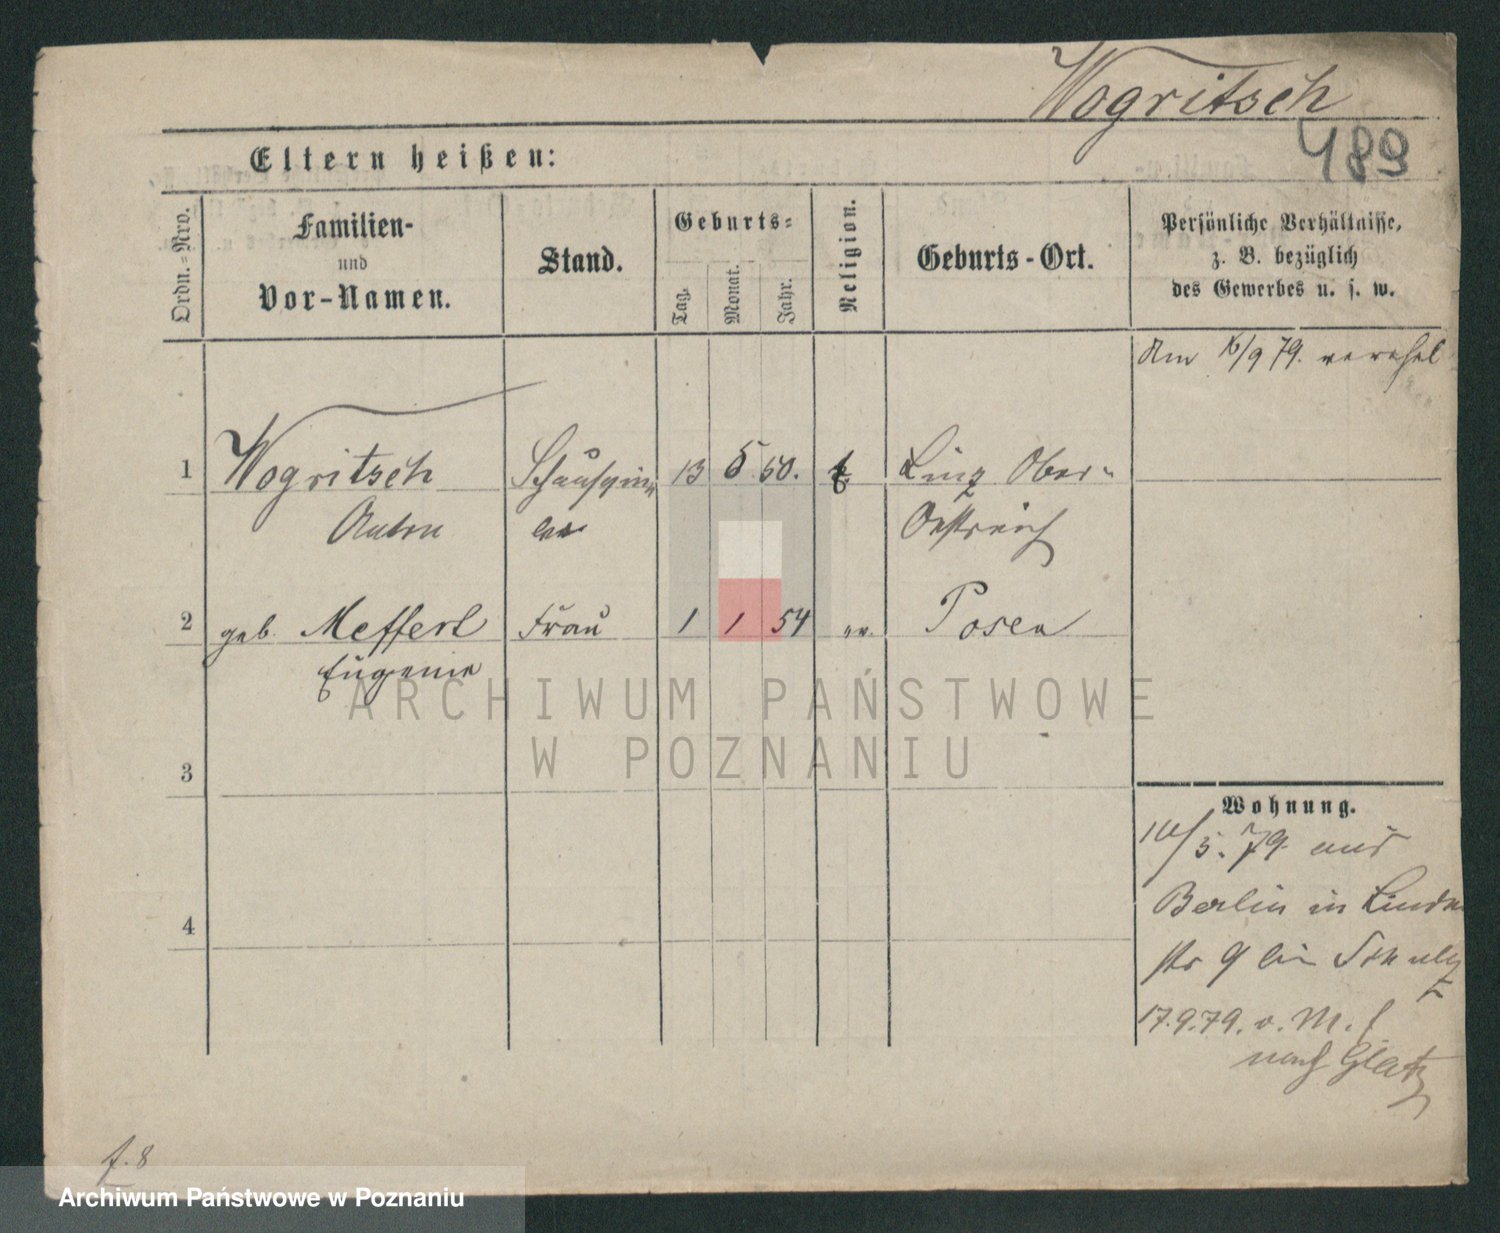 Wogritsch
489
Eltern heißen:
Ordn.=Nro.
Familien-
und
Vor-Namen.
Stand.
Geburts=
Tag.
Monat.
Jahr.
Religion.
Geburts-Ort.
Persönliche Verhältnisse,
z. B. bezüglich
des Gewerbes u. s. w.
Am 16/9 79. verehel
1 Wogritsch Schauspie 13 5 50. Linz Ober-
Anton ler Oestreich
2 geb. Meffert Frau 1 1 54 ev. Posen
Eugenie
ARCHIWUM PAŃSTWOWE
W POZNANIU
3
Wohnung.
10/5. 79. aus
Berlin in Linden
str 9 bei Schulz
4
17.9.79. v. M. f
nach Glatz
f. 8
Archiwum Państwowe w Poznaniu